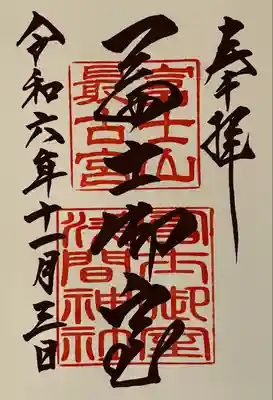 奉拝
冨士御室
富士山
最古宮
冨士御室
浅間神社
令和六年十一月三日